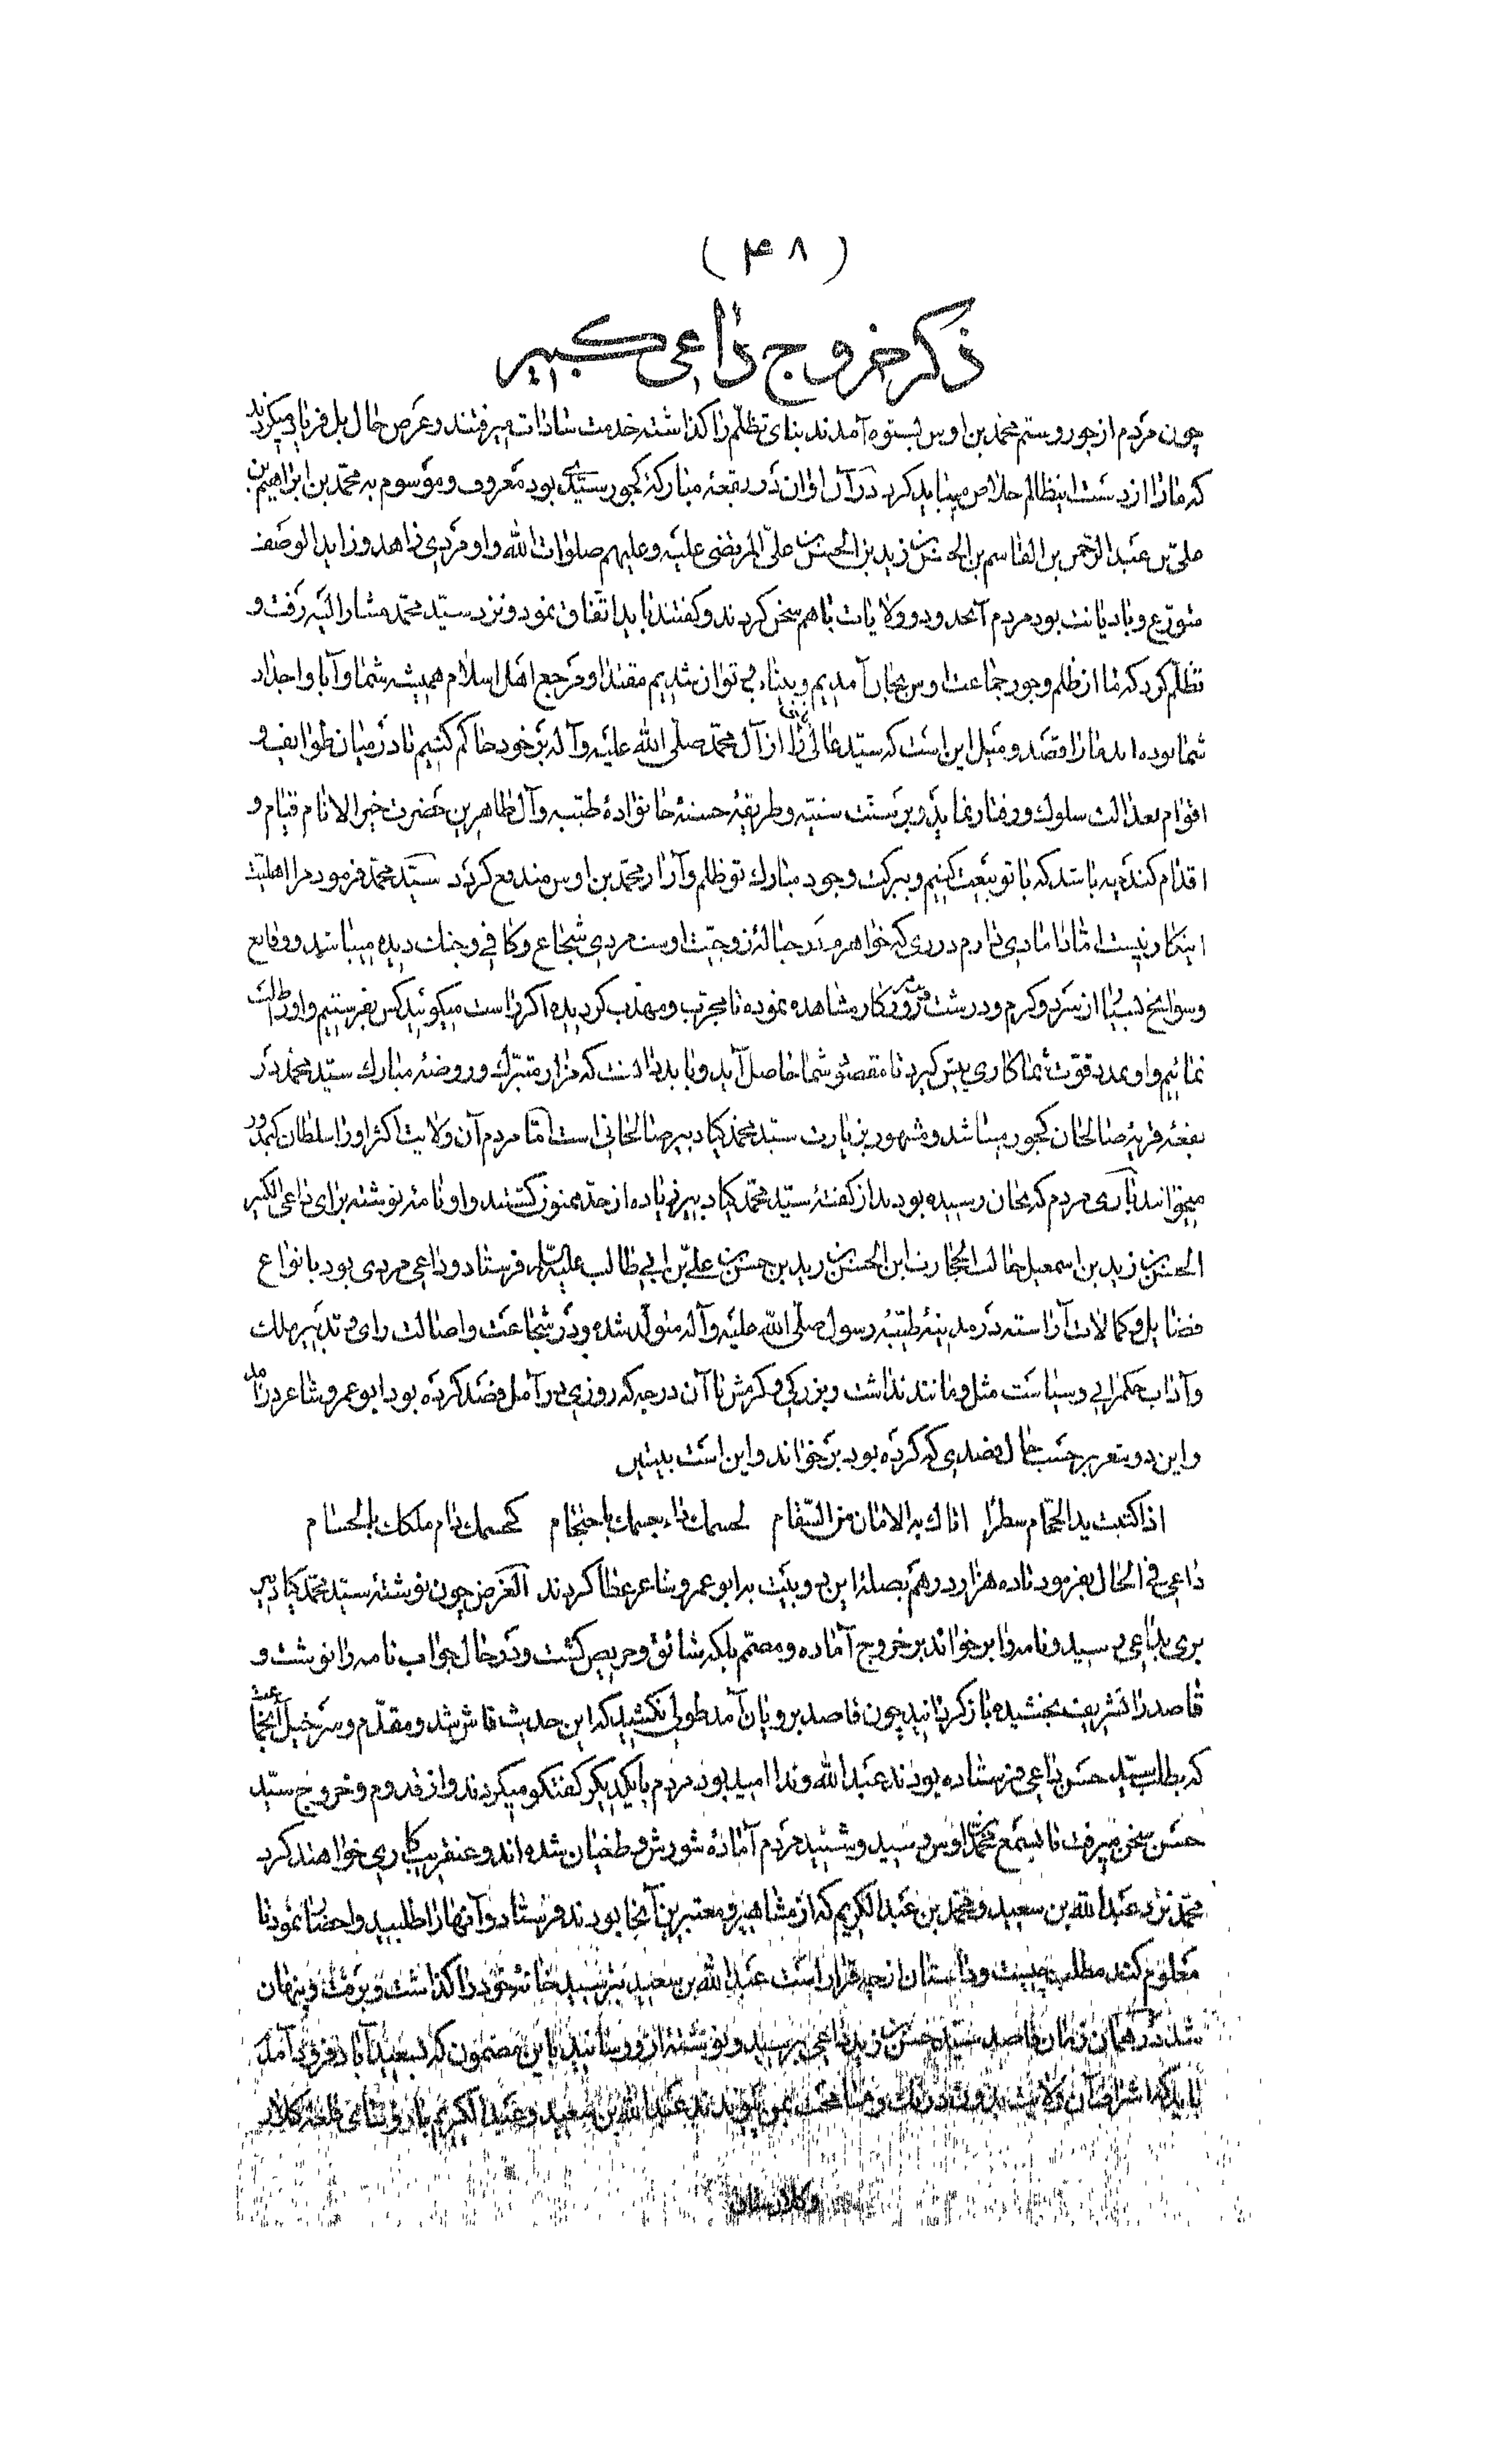 ( ۴۸ )
ذکر خروج داعی کبیر
چون مردم از جور و ستم محمد بن اوس بستوه آمدند بنای تظلّم را گذاشته خدمت سادات میرفتند و عرض حال بل فریاد میکردند
که ما را از دست این ظالم خلاص میباید کرد در آن اوان در بقعهٔ مبارکهٔ کجور سیّدی بود معروف و موسوم به محمّد بن ابراهیم بن
علیّ بن عبد الرّحمن بن القاسم بن الحسن بن زید بن الحسن بن علیّ المرتضی علیه و علیهم صلوات الله و او مردی زاهد و زاید الوصف
متورّع و با دیانت بود مردم آنحدود و ولایات با هم سخن کردند و گفتند باید اتّفاق نمود و نزد سیّد محمّد مشار الیه رفت و
تظلّم کرد که ما از ظلم و جور جماعت اوس بجان آمدیم و بیتاب و بی توان شدیم مقتدا و مرجع اهل اسلام همیشه شما و آبا و اجداد
شما بوده اند ما را قصد و میل این است که سیّد عالی را از آل محمّد صلّی الله علیه و آله بر خود حاکم کنیم تا در میان طوایف و
اقوام بعدالت سلوک و رفتار نماید و بر سنّت سنیّه و طریقهٔ حسنهٔ خانوادهٔ طیّبه و آل طاهرین حضرت خیر الانام قیام و
اقدام کند چه باشد که با تو بیعت کنیم و ببرکت وجود مبارک تو ظلم و آزار محمّد بن اوس مندفع گردد سیّد محمّد فرمود مرا اهلیّت
اینکار نیست امّا دامادی دارم در ری که خواهرم در حبالهٔ زوجیّت اوست مردی شجاع و کافی و جنک دیده میباشد و وقایع
و سوانح بسیار از سرد و گرم و درشت و نرم روزگار مشاهده نموده تا مجرّب و مهذّب گردیده اگر راست میگوئید کس بفرستیم و او را طلب
نمائیم و او بمدد قوّت شما کاری پیش گیرد تا مقصود شما حاصل آید و باید دانست که مزار متبرّک و روضهٔ مبارک سیّد محمّد در
بقعهٔ قریهٔ صالحان کجور میباشد و مشهور بزیارت سیّد محمّد کیا دبیر صالحانی است امّا مردم آن ولایت اکثر او را سلطان کیمدور
میخوانند باری مردم که بجان رسیده بودند از گفتهٔ سیّد محمّد کیا دبیر زیاده از حدّ ممنون گشتند و او نامه نوشته برای داعی الکبیر
الحسن بن زید بن اسمعیل حالب الحجارة ابن الحسن بن زید بن حسن بن علیّ بن ابی طالب علیه السّلام فرستاد و داعی مردی بود بانواع
فضایل و کمالات آراسته در مدینهٔ طیّبهٔ رسول صلّی الله علیه و آله متولّد شده و در شجاعت و اصالت رای و تدبیر ملک
و آداب حکمرانی و سیاست مثل و مانند نداشت و بزرگی و کرمش تا آن درجه که روزی در آمل فصد کرده بود ابو عمرو شاعر درآمد
و این دو شعر بر حسب حال فصدی که کرده بود بر خواند و این است بیتین
اذا کتبت ید الحجّام سطرًا اتاک به الامان من السّقام لحسمک داء جسمک باحتجام کحسمک داء ملکک بالحسام
داعی فی الحال بفرمود تا ده هزار درهم بصلهٔ این دو بیت به ابو عمرو شاعر عطا کردند الغرض چون نوشتهٔ سیّد محمّد کیا دبیر
بری بداعی رسید و نامه را بر خواند بر خروج آماده و مصمّم بلکه شائق و حریص گشت و در حال جواب نامه را نوشت و
قاصد را تشریف بخشیده باز گردانید چون قاصد برویان آمد طولی نکشید که این حدیث فاش شد و مقدّم و سرخیل آنجماعت
که بطلب سیّد حسن داعی فرستاده بودند عبد الله وندا امید بود مردم با یکدیگر گفتگو میکردند و از قدوم و خروج سیّد
حسن سخن میرفت تا بسمع محمّد اوس رسید و شنید مردم آمادهٔ شورش و طغیان شده اند و عنقریب کاری خواهند کرد
محمّد نزد عبد الله بن سعید و محمّد بن عبد الکریم که از مشاهیر و معتبرین آنجا بودند فرستاد و آنها را طلبید و احضار نمود تا
معلوم کند مطلب چیست و داستان از چه قرار است عبد الله بن سعید بترسید خانهٔ خود را گذاشت و برفت و پنهان
شد در همان زمان قاصد سیّد حسن بن زید داعی برسید و نوشته از او رسانید باین مضمون که بسعیدآباد فرود آمد
باید که اشراف آن ولایت بدون درنک و مسامحت بمن پیوندند عبد الله بن سعید و عبد الکریم با رؤسای قلعه کلار
و کلارستاق